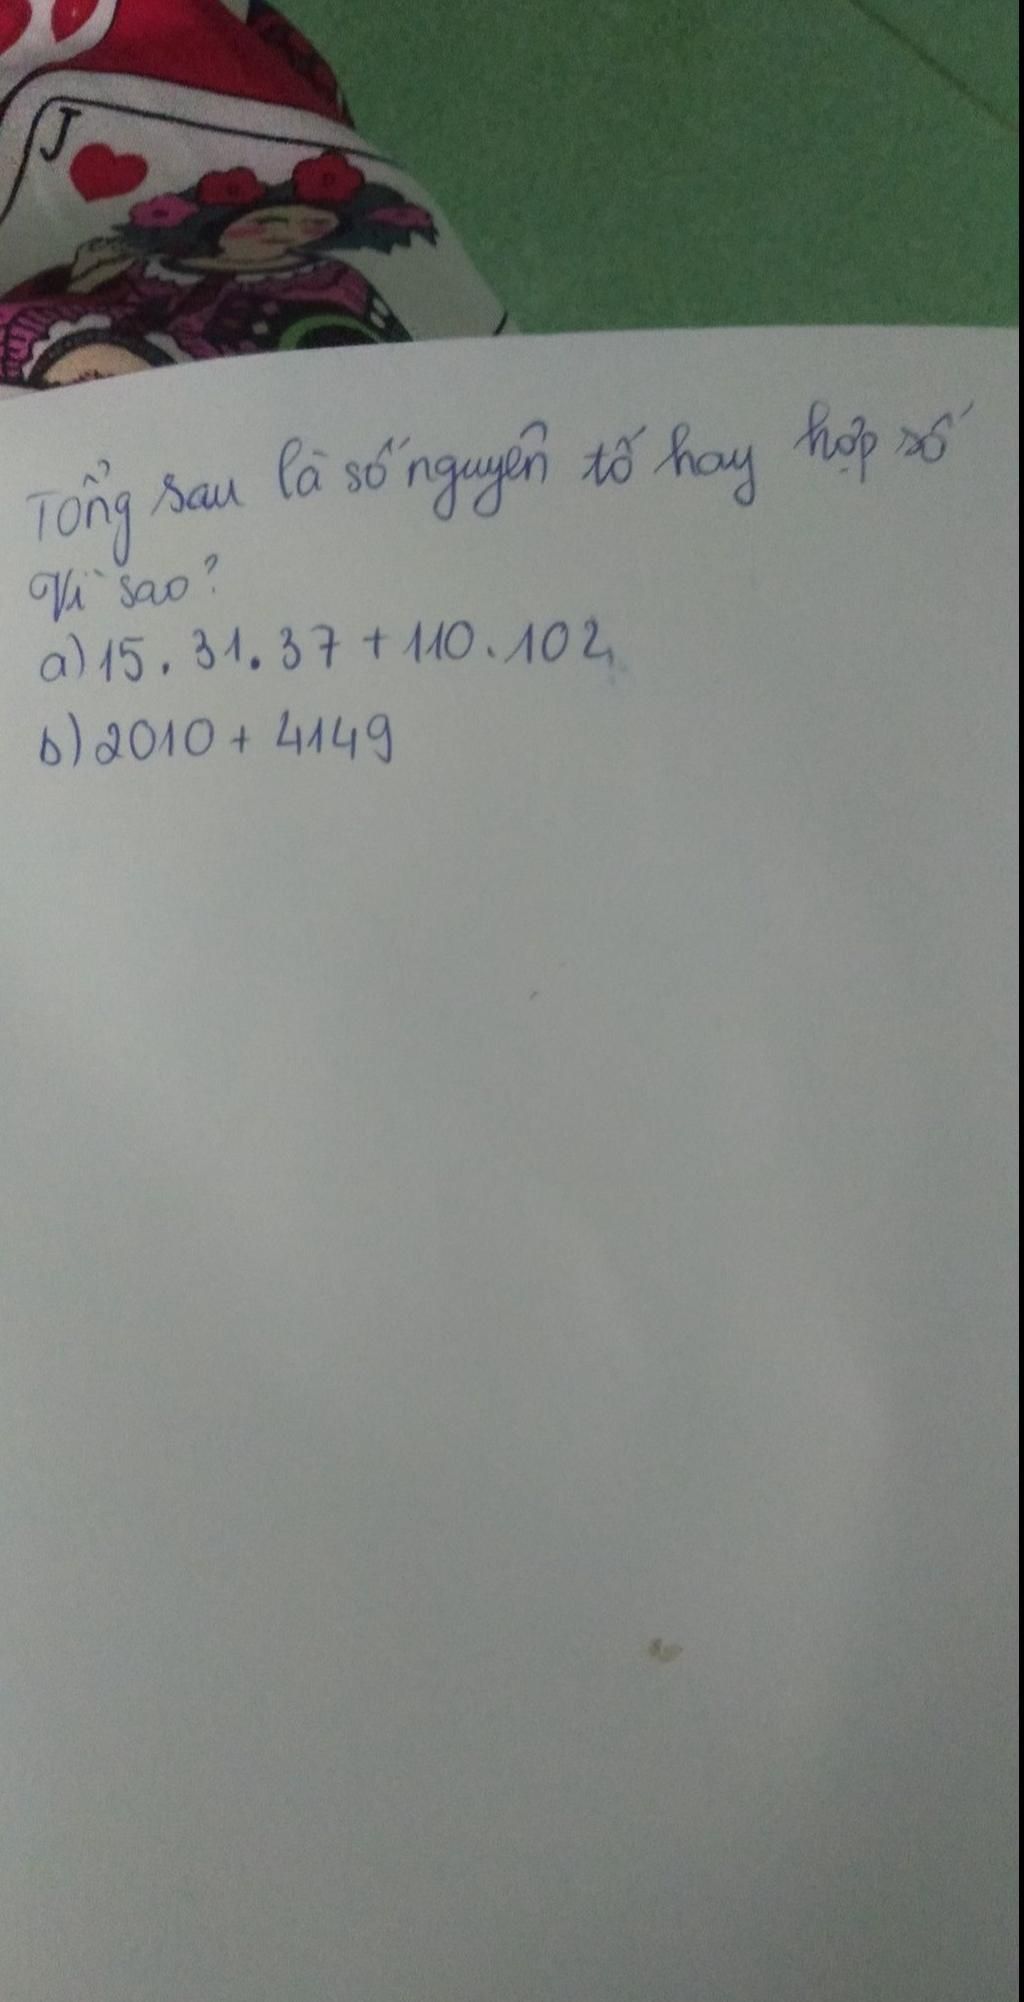 J
Tổng sau là số nguyên tố hay hợp số
Vì sao?
a) 15. 31. 37 + 110. 102
b) 2010 + 4149